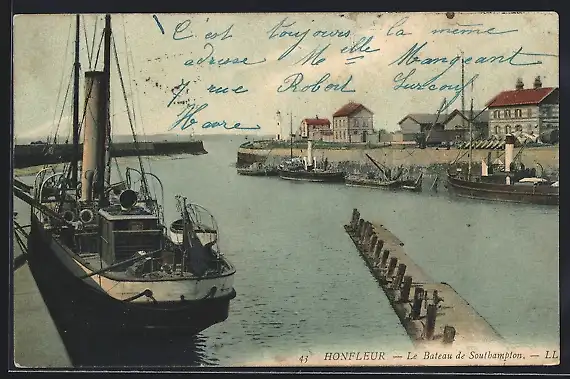 C'est toujours la même
adresse Mlle Mangeant
7 rue Robert Surcouf
Havre
43 HONFLEUR — Le Bateau de Southampton. — LL